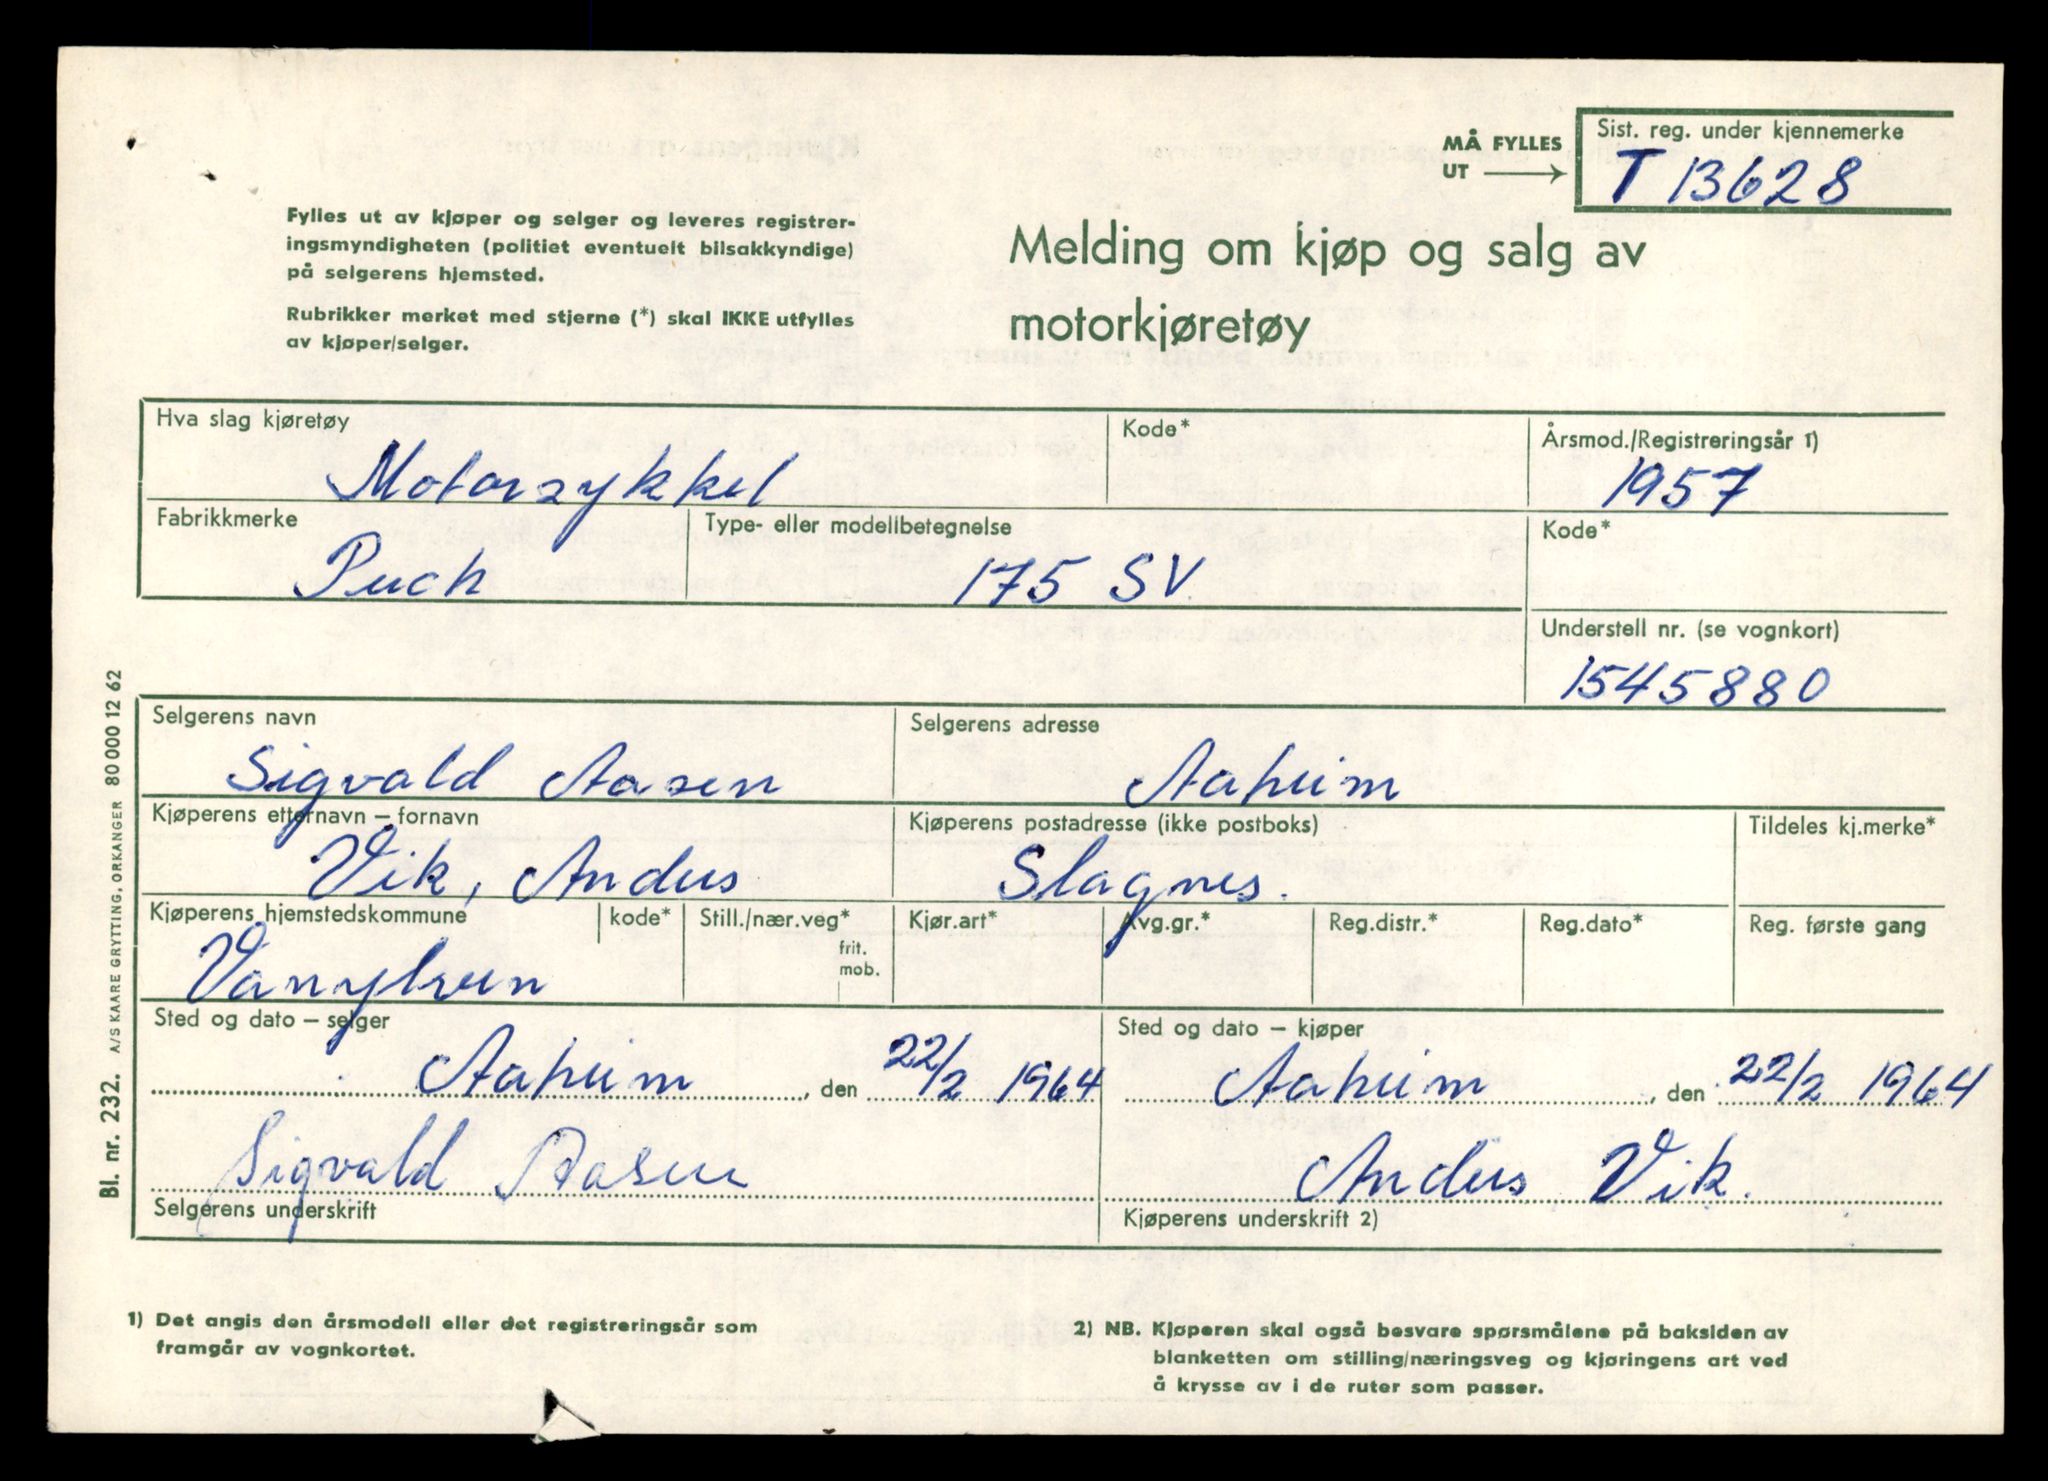 MÅ FYLLES
UT
Sist. reg. under kjennemerke
T 13628
Fylles ut av kjøper og selger og leveres registrer-
ingsmyndigheten (politiet eventuelt bilsakkyndige)
på selgerens hjemsted.
Rubrikker merket med stjerne (*) skal IKKE utfylles
av kjøper/selger.
Melding om kjøp og salg av
motorkjøretøy
Hva slag kjøretøy
Motorsykkel
Kode*
Årsmod./Registreringsår 1)
1957
Fabrikkmerke
Puch
Type- eller modellbetegnelse
175 SV
Kode*
Understell nr. (se vognkort)
1545880
Selgerens navn
Sigvald Aasen
Selgerens adresse
Aaheim
Kjøperens etternavn – fornavn
Vik, Anders
Kjøperens postadresse (ikke postboks)
Slagnes.
Tildeles kj.merke*
Kjøperens hjemstedskommune
Vanylven
kode*
Still./nær.veg*
frit.
mob.
Kjør.art*
Avg.gr.*
Reg.distr.*
Reg.dato*
Reg. første gang
Sted og dato – selger
Aaheim, den 22/2 1964
Sted og dato – kjøper
Aaheim, den 22/2 1964
Sigvald Aasen
Selgerens underskrift
Anders Vik.
Kjøperens underskrift 2)
1) Det angis den årsmodell eller det registreringsår som
framgår av vognkortet.
2) NB. Kjøperen skal også besvare spørsmålene på baksiden av
blanketten om stilling/næringsveg og kjøringens art ved
å krysse av i de ruter som passer.
Bl. nr. 232. A/S KAARE GRYTTING, ORKANGER 80000 12 62